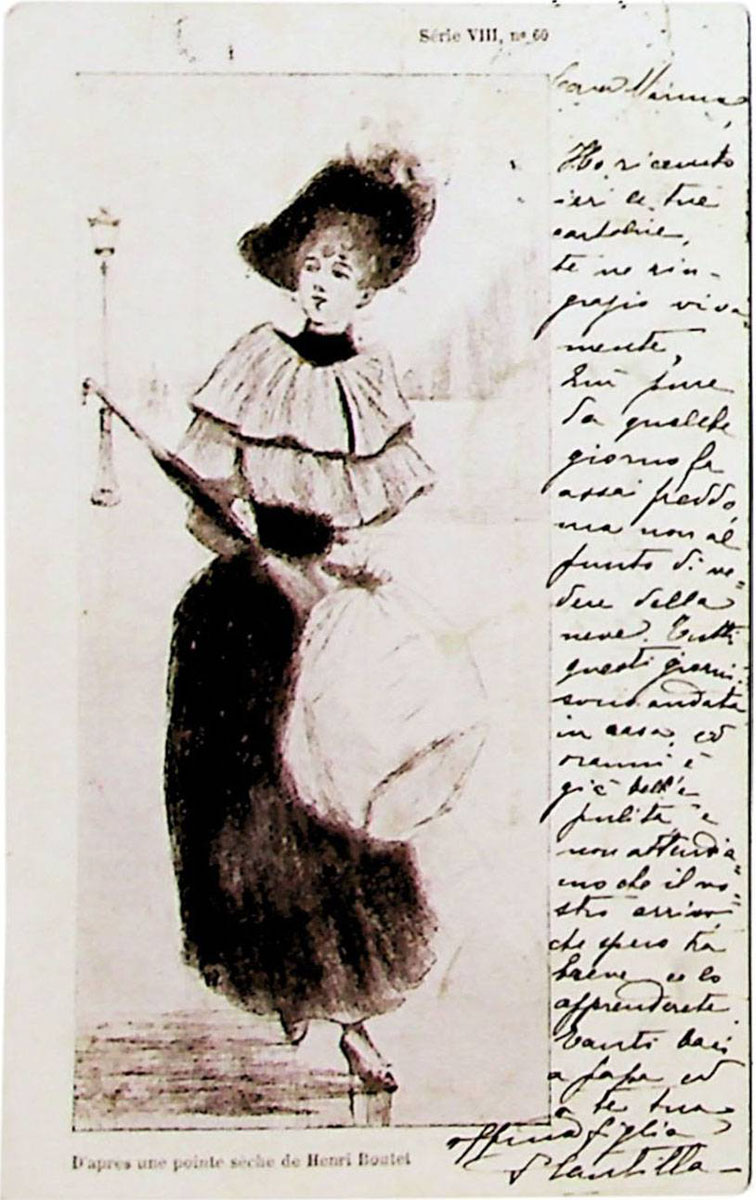 Série VIII, nº 60
Cara Mamma,
Ho ricevuto
ieri le tue
cartoline,
te ne rin-
grazio viva
mente,
Qui pure
da qualche
giorno fa
assai freddo,
ma non al
punto di ve=
dere della
neve. Tutti
questi giorni
sono andata
in casa ed
oramai è
già bell'e
pulita e
non attendia=
mo che il vo=
stro arrivo
che spero tra
breve ce lo
apprenderete.
Tanti baci
a papà ed
a te tua
affma figlia
D'apres une pointe sèche de Henri Boutet